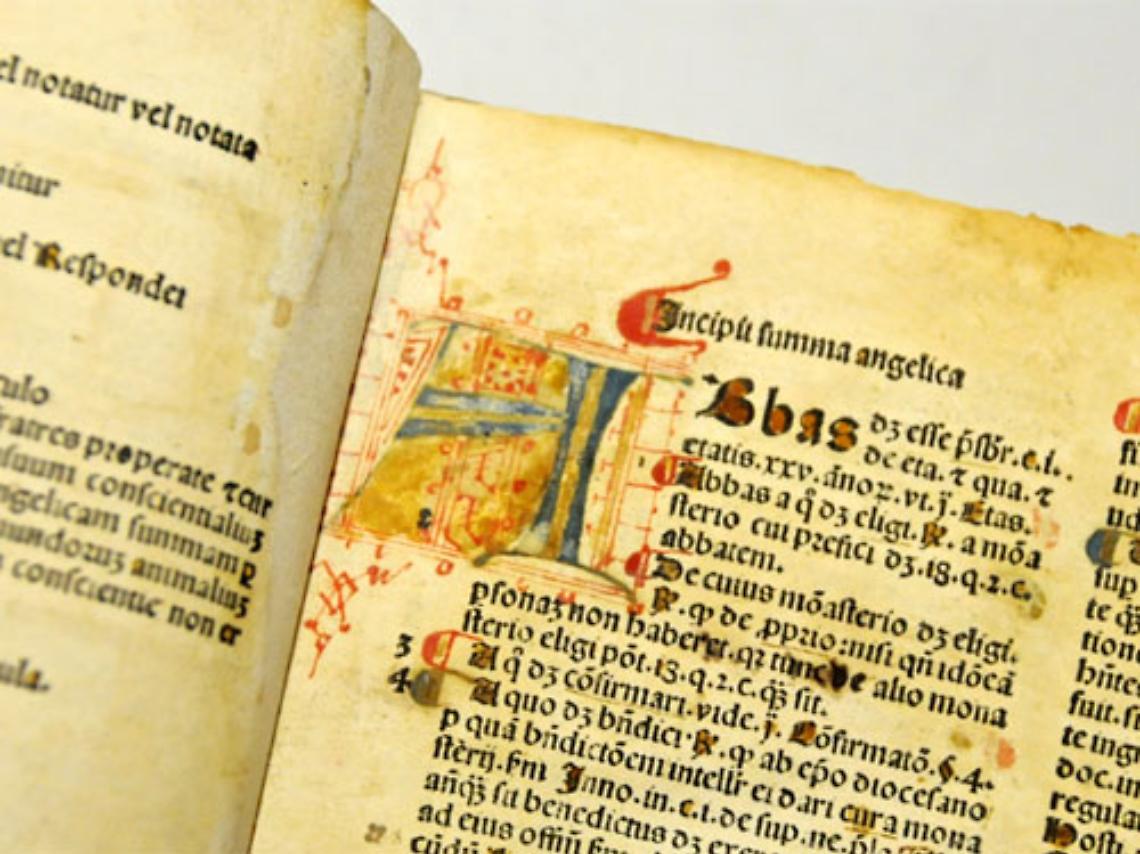 el notatur vel notata
nitur
el Respondet
culo
fratres properate τ cur
nsuum conscientialiuʒ
ngelicam summam
mundoruʒ animaliuʒ
conscientie non er
ula.
Incipit summa angelica
Abbas dʒ esse p̄sbr̄.e.i..
de eta. τ qua. τ
etatis.xxv.āno2.vt.j̄. Etas.
Abbas a q̄ dʒ eligi. R̄. a mōa
sterio cui prefici dʒ.18.q.2.c.
abbatem.
De cuius mōasterio dʒ eligi.
R̄.qp de ꝓprio:nisi qn̄ idōcā
psonaʒ non haberet.q2 tunc de alio mona
sterio eligi pōt.13.q.2.c.q̄ʒ sit.
3 A q̄ dʒ cōfirmari.vide.j̄. Cōfirmatō.§.4.
4 A quo dʒ bn̄dici R̄.qp ab ep̄o diocesano
p quā bn̄dictōem intellr̄ ei dari cura mona
stèrij.fm Inno.in.c.i.de sup.ne.
sit benedictus dʒ
ad eius offiū
fi
in
sup
te q̄ʒ
tione
hn̄te
fuit.
te ing
doc.in
regula
Host